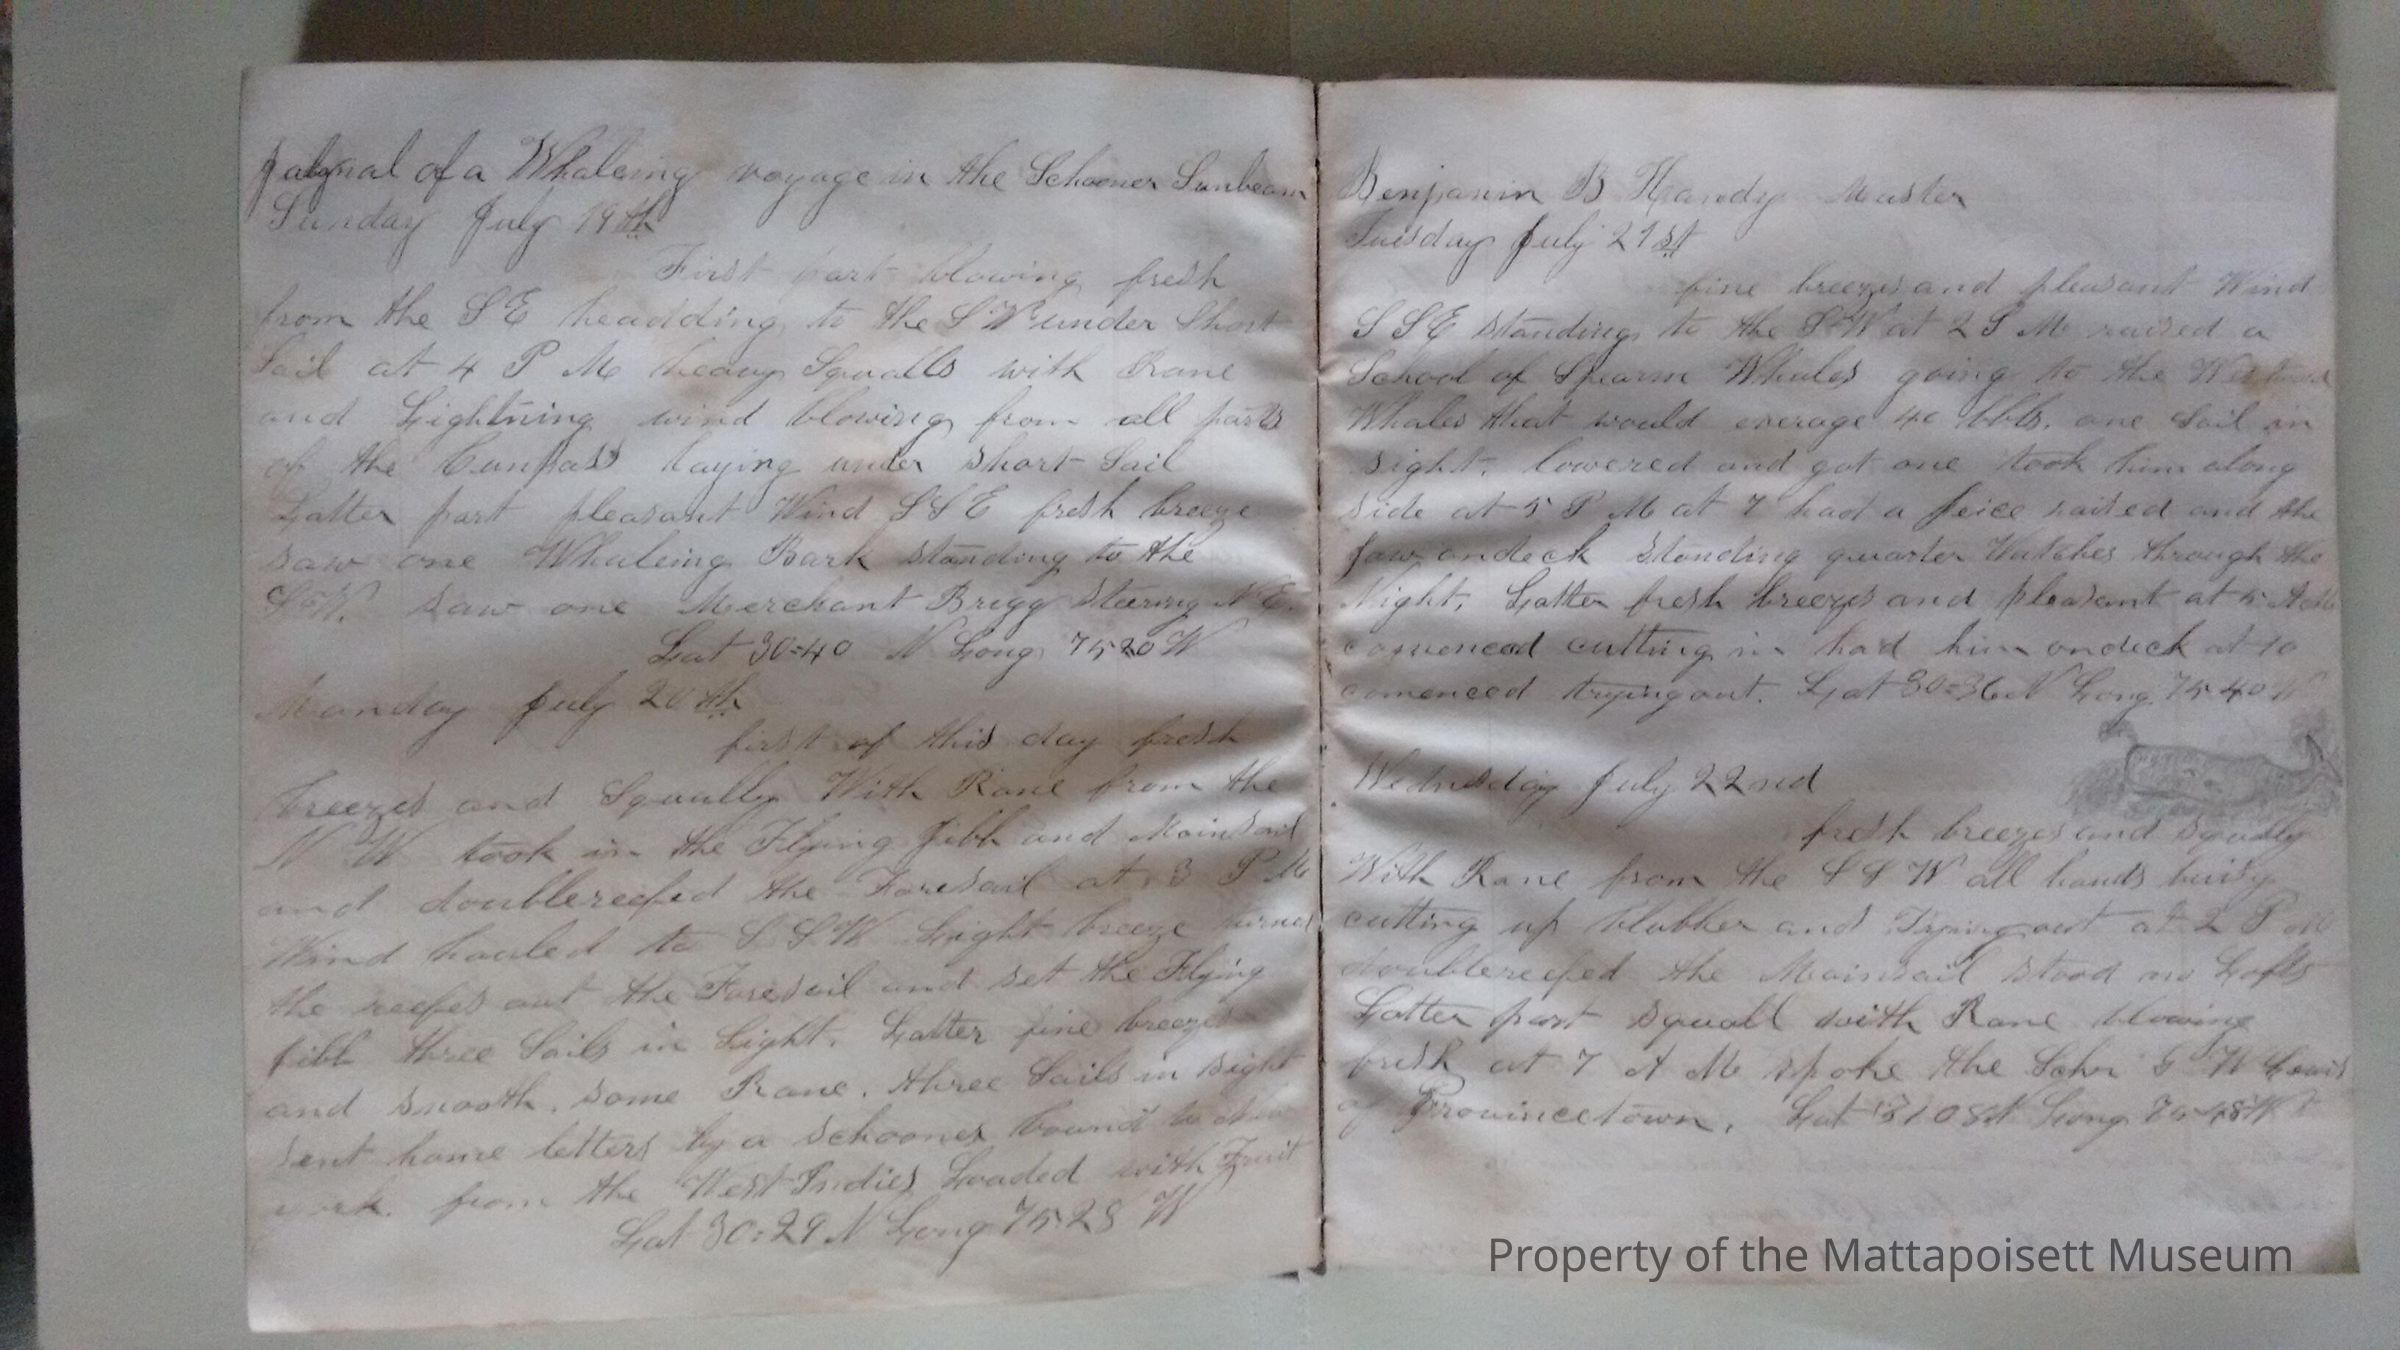 Jalornal of a Whaleing voyage in the Schooner Sunbeam
Sunday July 19th
First part blowing fresh
from the SE headding to the SW under Short
Sail at 4 P M heavy Squalls with Rane
and Lightning wind blowing from all parts
of the Cumpass laying under short Sail
Latter part pleasant Wind SSE fresh breeze
saw one Whaleing Bark standing to the
SW. saw one Merchant Brigg steering N E.
Lat 30=40 N Long 75 20 W
Monday July 20th
first of this day fresh
breezes and Squally With Rane from the
N W took in the Flying Jibb and Mainsail
and doublereefed the Foresail at 3 P M
Wind hauled to S S W Light breeze turned
the reefes out the Foresail and set the Flying
jibb three Sails in Sight. Latter fine breezes
and smooth. some Rane. three Sails in sight
sent home letters by a schooner bound to New
work. from the West Indies Loaded with Fruit
Lat 30=29 N Long 75 28 W
Benjamin B Handy Master
Tuesday July 21st
fine breezes and pleasant Wind
S S E standing to the SW at 2 P M raised a
School of Spearm Whales going to the
Whales that would everage 40 bbls. one Sail in
sight. lowered and got one took him along
side at 5 P M at 7 had a peice raised and the
Jaw ondeck standing quarter Watches through the
Night. Latter fresh breezes and pleasant at 5 A M
comenced cutting in had him ondeck at 10
comenced trying out. Lat 30=36 N Long 75 40 W
Wednesday July 22nd
fresh breezes and squally
With Rane from the S S W all hands buisy
cutting up blubber and Trying out at 2 P M
doublereefed the Mainsail stood no Lofts
Latter part squall with Rane blowing
fresh at 7 A M spoke the Schr G W Lewis
of Provincetown. Lat 31 08 N Long 75 48 W
Property of the Mattapoisett Museum